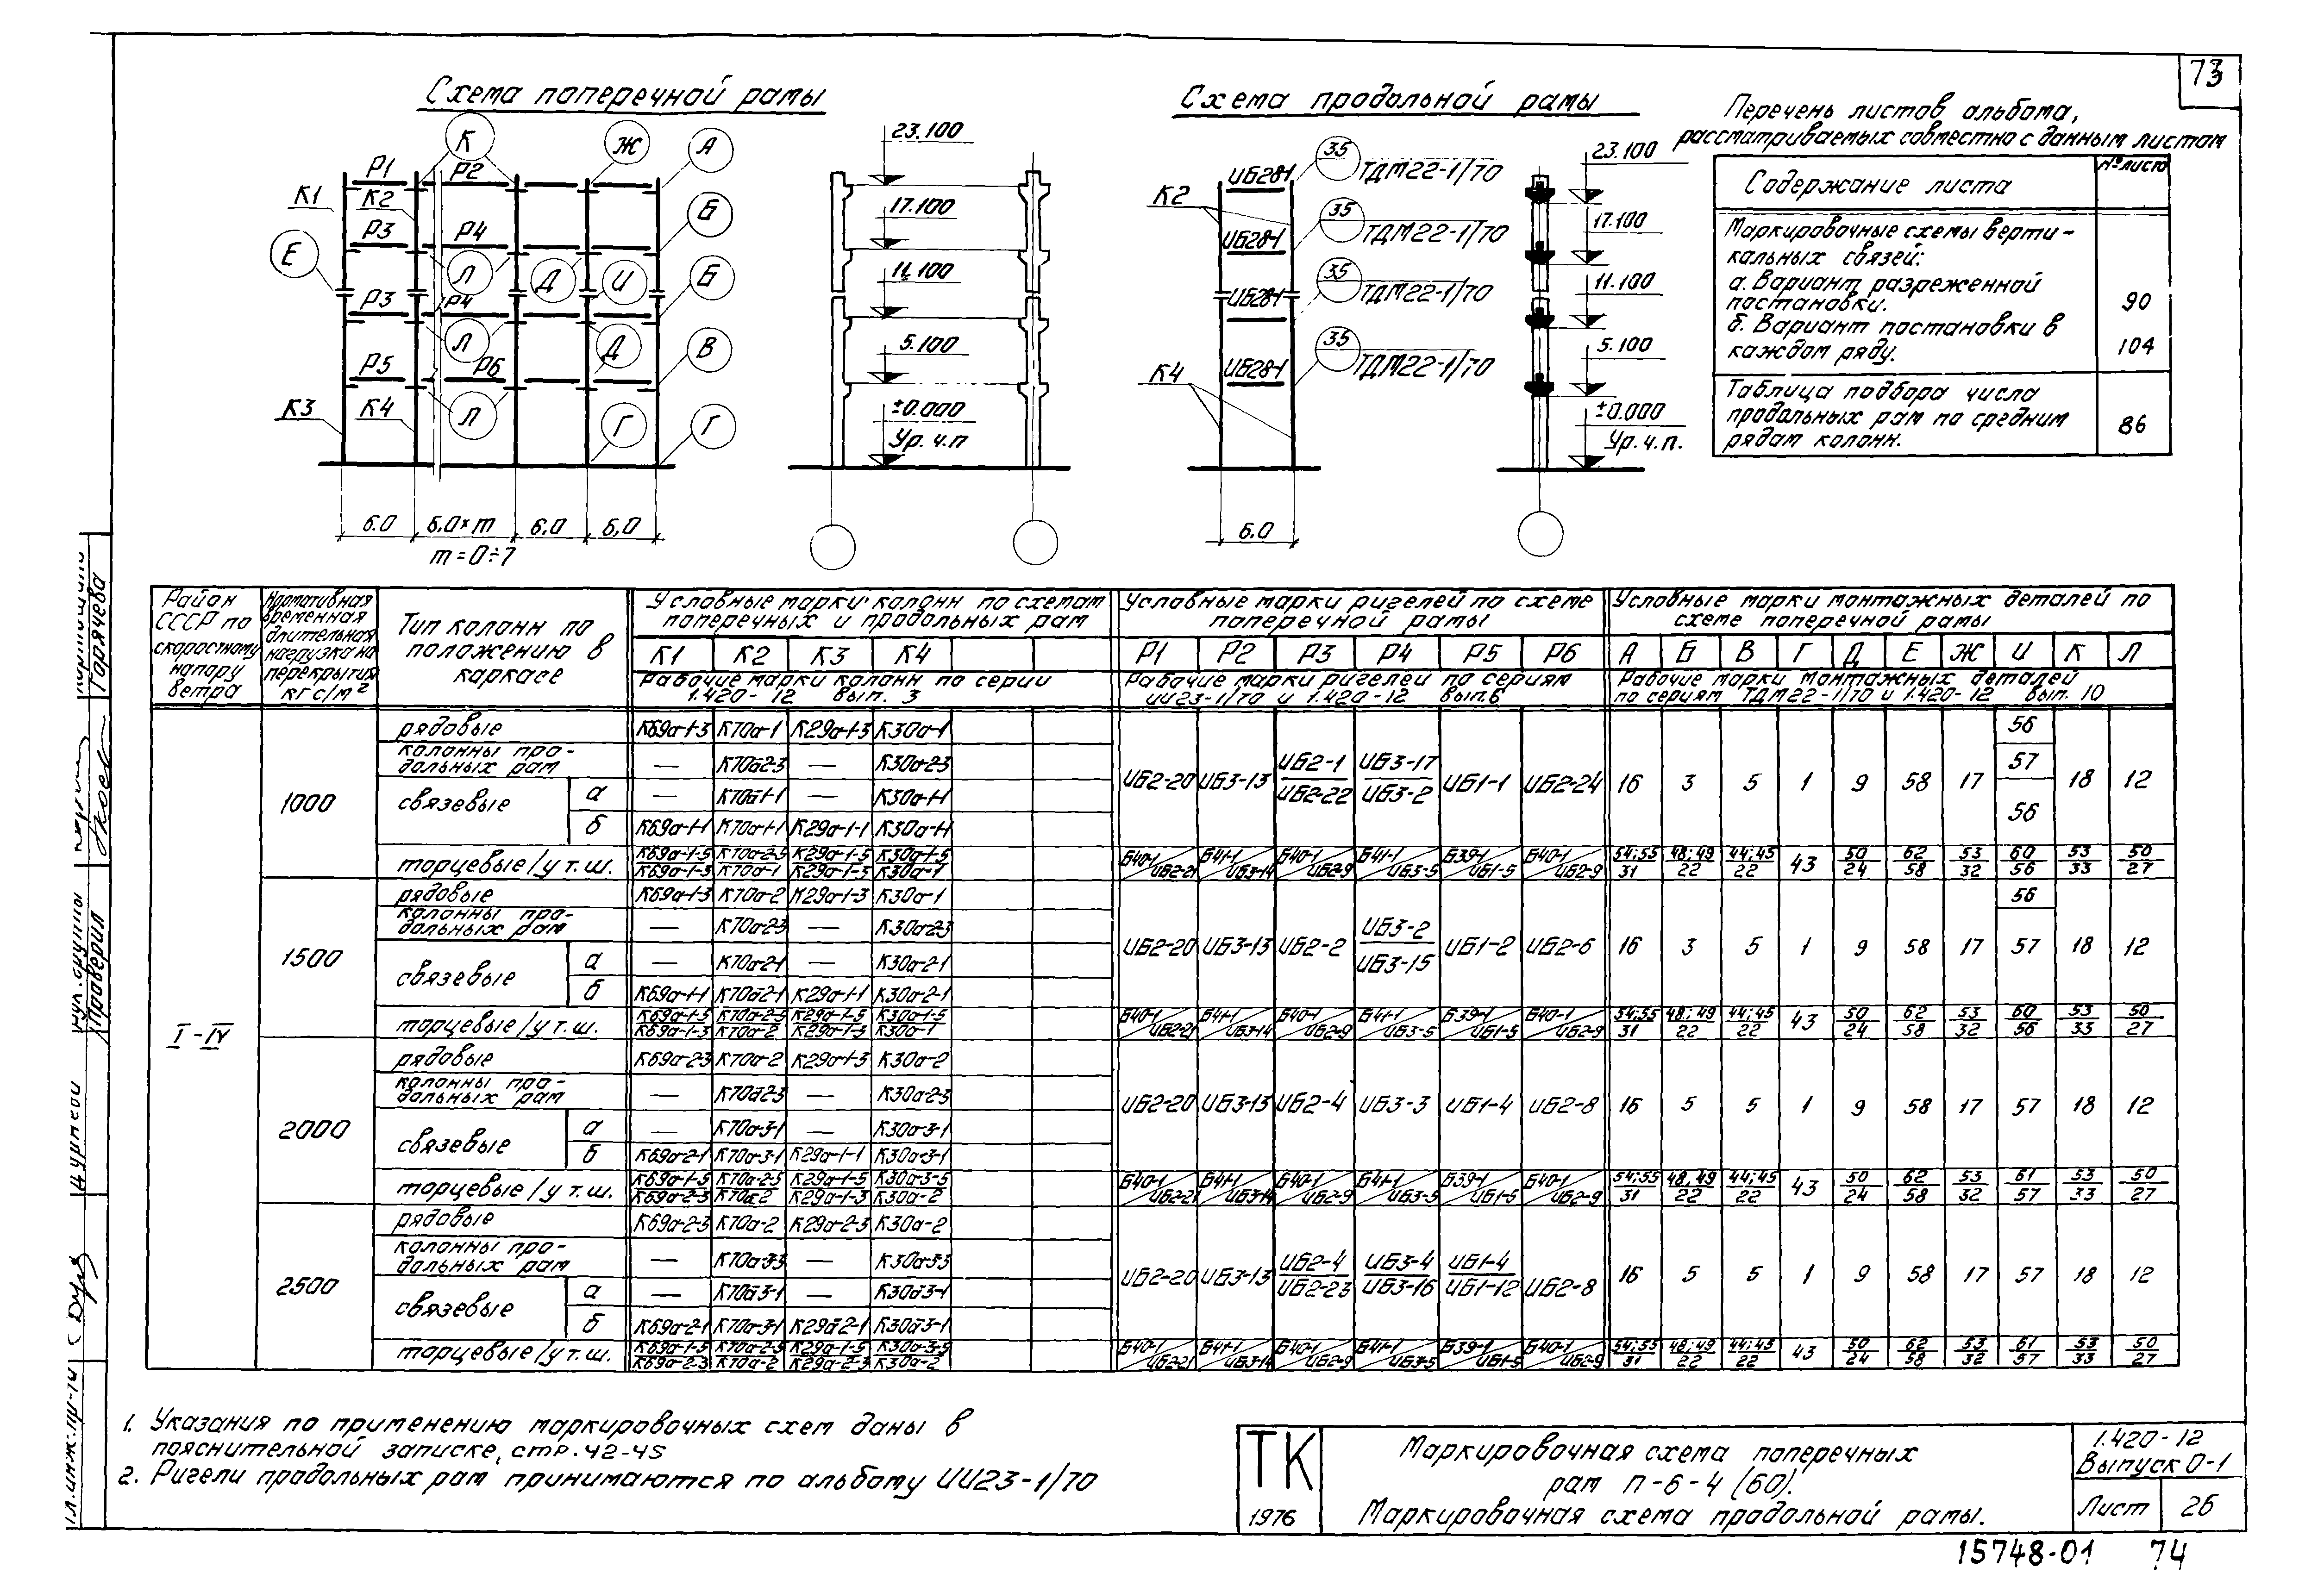 73
Схема поперечной рамы
Схема продольной рамы
Перечень листов альбома,
рассматриваемых совместно с данным листом
Содержание листа
№ листа
Маркировочные схемы верти-
кальных связей:
а. Вариант разреженной
постановки.
90
б. Вариант постановки в
каждом ряду.
104
Таблица подбора числа
продольных рам по средним
рядам колонн.
86
К Ж А
Р1 Р2
К1 К2
Б
Р3 Р4
Е Л Д И Б
Р3 Р4
Л Д В
Р5 Р6
К3 К4 Л Г Г
6.0 6,0×m 6.0 6,0
m=0÷7
23.100
17.100
11.100
5.100
±0.000
Ур.ч.п
К2
К4
ИБ28-1 35 ТДМ22-1/70
ИБ28-1 35 ТДМ22-1/70
ИБ28-1 35 ТДМ22-1/70
ИБ28-1 35 ТДМ22-1/70
6.0
23.100
17.100
11.100
5.100
±0.000
Ур.ч.п.
Район СССР по скоростному напору ветра
Нормативная временная длительная нагрузка на перекрытия кгс/м²
Тип колонн по положению в каркасе
Условные марки колонн по схемам поперечных и продольных рам
Условные марки ригелей по схеме поперечной рамы
Условные марки монтажных деталей по схеме поперечной рамы
К1 К2 К3 К4
Р1 Р2 Р3 Р4 Р5 Р6
А Б В Г Д Е Ж И К Л
Рабочие марки колонн по серии 1.420-12 вып. 3
Рабочие марки ригелей по сериям ИИ23-1/70 и 1.420-12 вып.6
Рабочие марки монтажных деталей по сериям ТДМ22-1/70 и 1.420-12 вып. 10
I-IV
1000
рядовые К69а-1-3 К70а-1 К29а-1-3 К30а-1
колонны про-дольных рам — К70а-2-3 — К30а-2-3
связевые а — К70а-1-1 — К30а-1-1
б К69а-1-1 К70а-1-1 К29а-1-1 К30а-1-1
ИБ2-20 ИБ3-13 ИБ2-1/ИБ2-22 ИБ3-17/ИБ3-2 ИБ1-1 ИБ2-24
16 3 5 1 9 58 17 56 57 56 18 12
торцевые/у т.ш. К69а-1-5/К69а-1-3 К70а-2-5/К70а-1 К29а-1-5/К29а-1-3 К30а-1-5/К30а-1
Б40-1/ИБ2-21 Б41-1/ИБ3-14 Б40-1/ИБ2-9 Б41-1/ИБ3-5 Б39-1/ИБ1-5 Б40-1/ИБ2-9
54;55/31 48;49/22 44;45/22 43 50/24 62/58 53/32 60/56 53/33 50/27
1500
рядовые К69а-1-3 К70а-2 К29а-1-3 К30а-1
колонны про-дольных рам — К70а-2-3 — К30а-2-3
связевые а — К70а-2-1 — К30а-2-1
б К69а-1-1 К70а-2-1 К29а-1-1 К30а-2-1
ИБ2-20 ИБ3-13 ИБ2-2 ИБ3-2/ИБ3-15 ИБ1-2 ИБ2-6
16 3 5 1 9 58 17 56 57 18 12
торцевые/у т.ш. К69а-1-5/К69а-1-3 К70а-2-5/К70а-2 К29а-1-5/К29а-1-3 К30а-1-5/К30а-1
Б40-1/ИБ2-21 Б41-1/ИБ3-14 Б40-1/ИБ2-9 Б41-1/ИБ3-5 Б39-1/ИБ1-5 Б40-1/ИБ2-9
54;55/31 48;49/22 44;45/22 43 50/24 62/58 53/32 60/56 53/33 50/27
2000
рядовые К69а-2-3 К70а-2 К29а-1-3 К30а-2
колонны про-дольных рам — К70а-2-3 — К30а-2-3
связевые а — К70а-3-1 — К30а-3-1
б К69а-2-1 К70а-3-1 К29а-1-1 К30а-3-1
ИБ2-20 ИБ3-13 ИБ2-4 ИБ3-3 ИБ1-4 ИБ2-8
16 5 5 1 9 58 17 57 18 12
торцевые/у т.ш. К69а-1-5/К69а-2-3 К70а-2-5/К70а-2 К29а-1-5/К29а-1-3 К30а-3-5/К30а-2
Б40-1/ИБ2-21 Б41-1/ИБ3-14 Б40-1/ИБ2-9 Б41-1/ИБ3-5 Б39-1/ИБ1-5 Б40-1/ИБ2-9
54;55/31 48,49/22 44;45/22 43 50/24 62/58 53/32 61/57 53/33 50/27
2500
рядовые К69а-2-3 К70а-2 К29а-2-3 К30а-2
колонны про-дольных рам — К70а-3-3 — К30а-3-3
связевые а — К70а-3-1 — К30а-3-1
б К69а-2-1 К70а-3-1 К29а-2-1 К30а-3-1
ИБ2-20 ИБ3-13 ИБ2-4/ИБ2-23 ИБ3-4/ИБ3-16 ИБ1-4/ИБ1-12 ИБ2-8
16 5 5 1 9 58 17 57 18 12
торцевые/у т.ш. К69а-1-5/К69а-2-3 К70а-2-5/К70а-2 К29а-1-5/К29а-2-3 К30а-3-5/К30а-2
Б40-1/ИБ2-21 Б41-1/ИБ3-14 Б40-1/ИБ2-9 Б41-1/ИБ3-5 Б39-1/ИБ1-5 Б40-1/ИБ2-9
54;55/31 48;49/22 44;45/22 43 50/24 62/58 53/32 61/57 53/33 50/27
1. Указания по применению маркировочных схем даны в
пояснительной записке, стр. 42-45
2. Ригели продольных рам принимаются по альбому ИИ23-1/70
ТК
1976
Маркировочная схема поперечных
рам п-6-4 (60).
Маркировочная схема продольной рамы.
1.420-12
Выпуск 0-1
Лист 26
15748-01 74
Горячева
Проверил